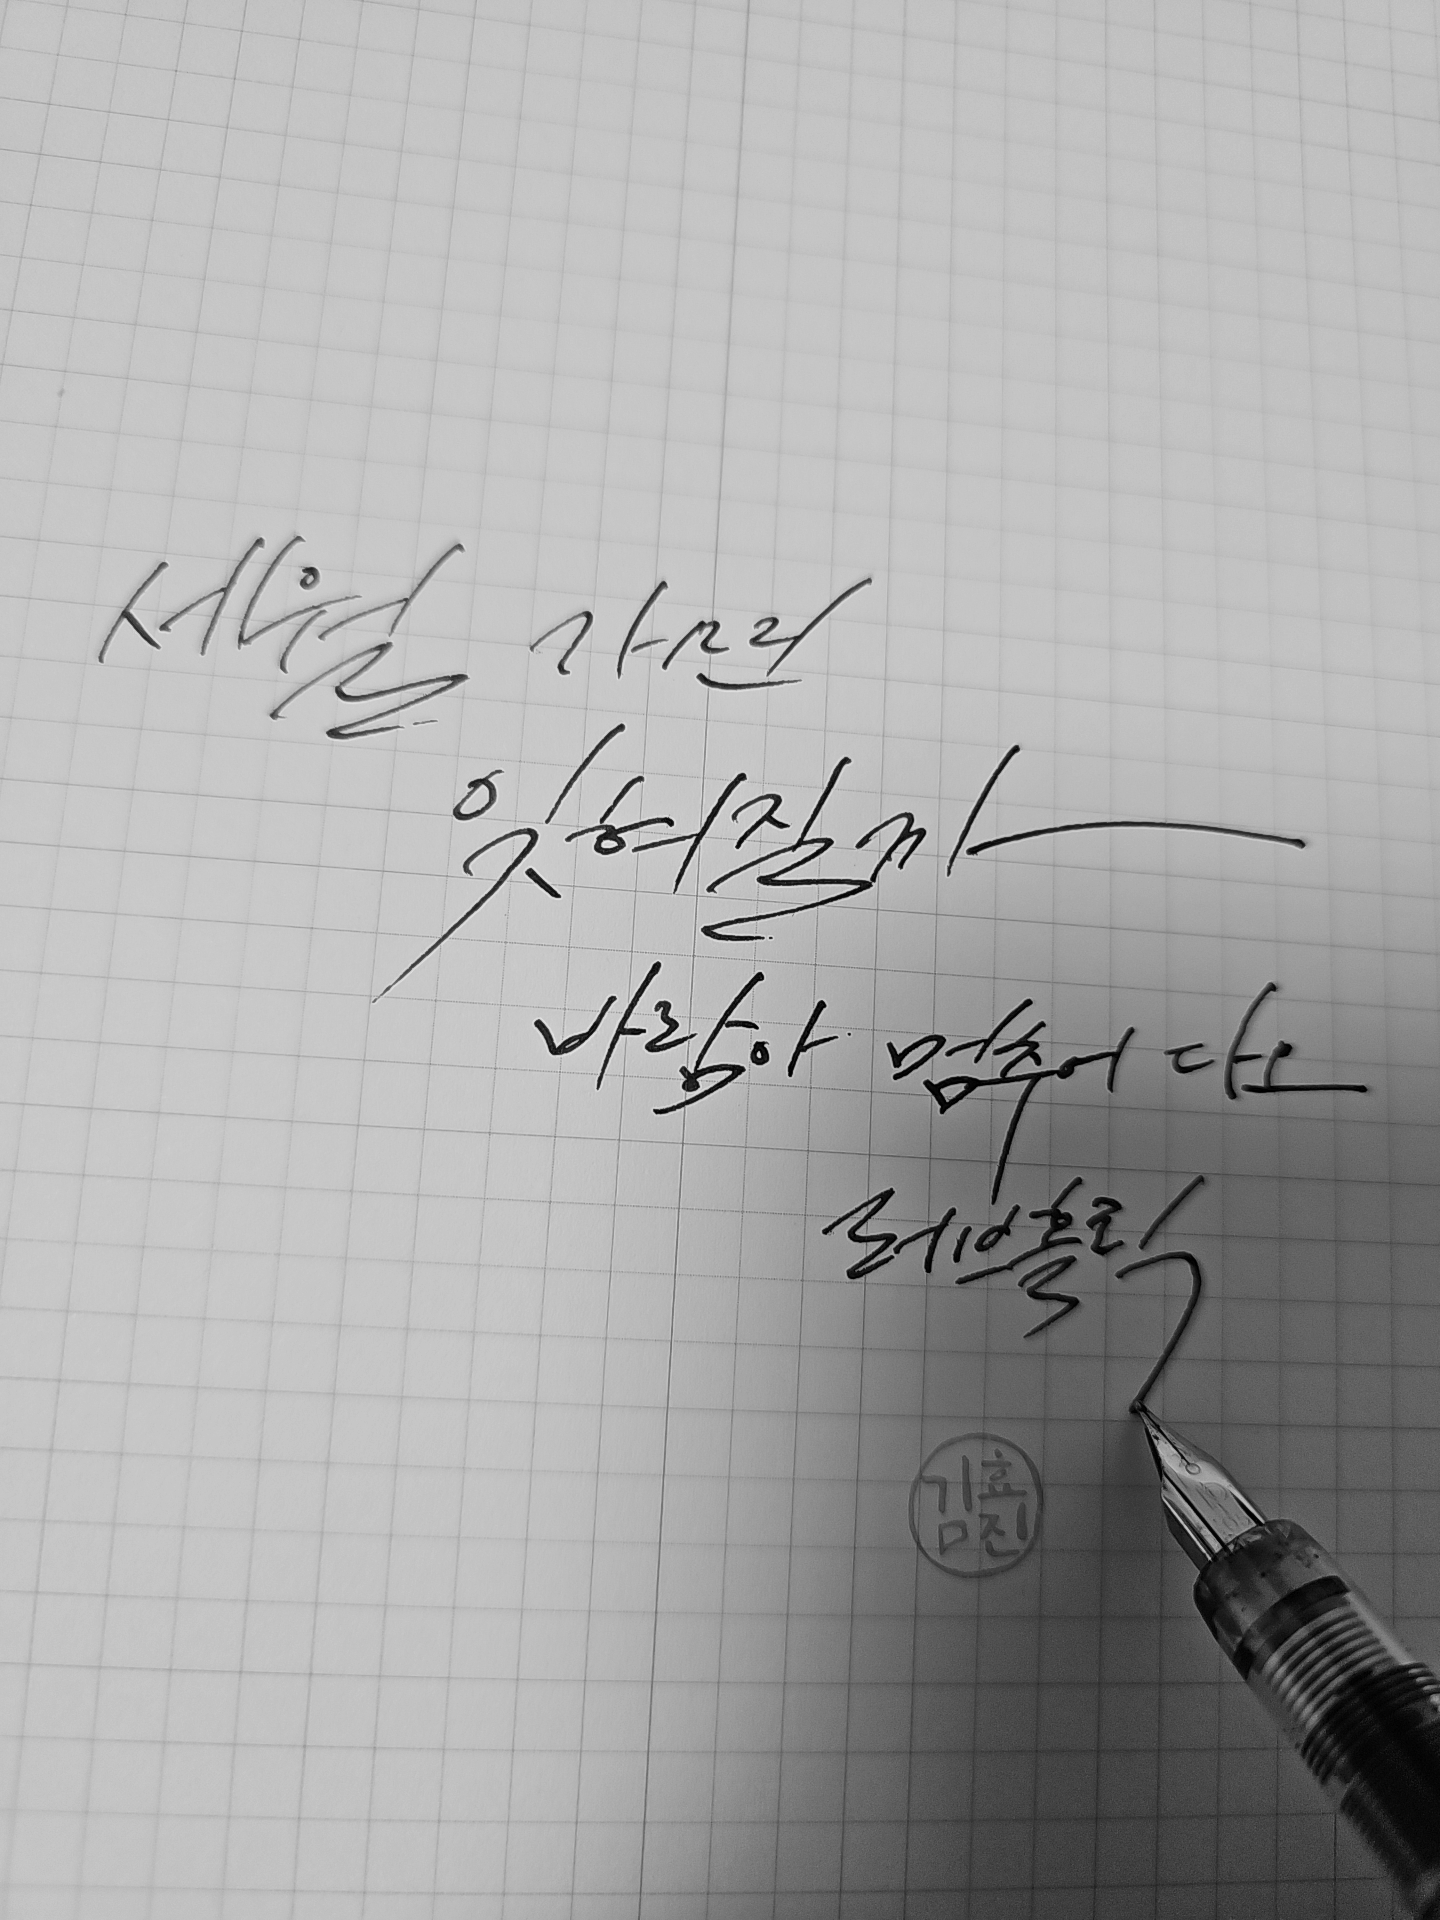 세월 가면
잊혀질까
바람아 멈추어 다오
레인홀릭
김효진